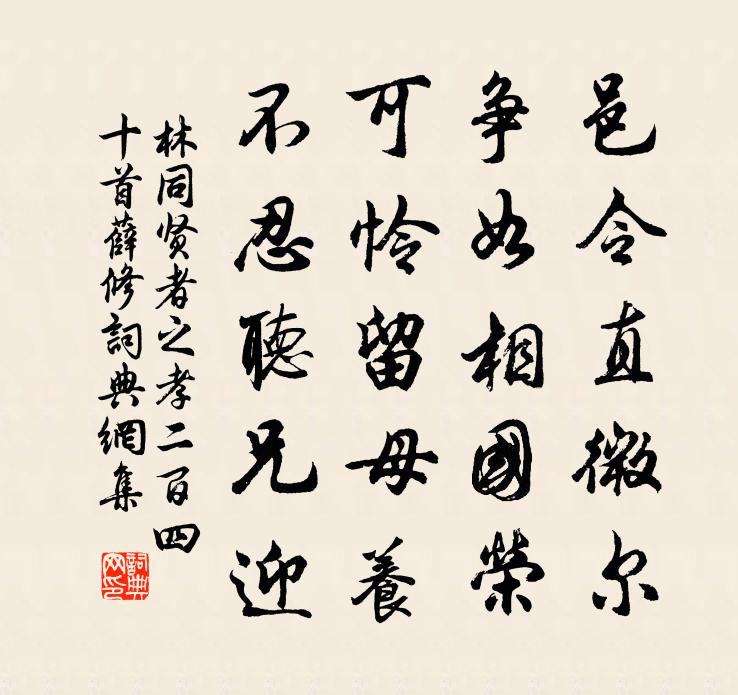 邑令直微尔
争如相國榮
可怜留母養
不忍聽兄迎
林同贤者之孝二百四
十首薛修詞典網集
詞典网印